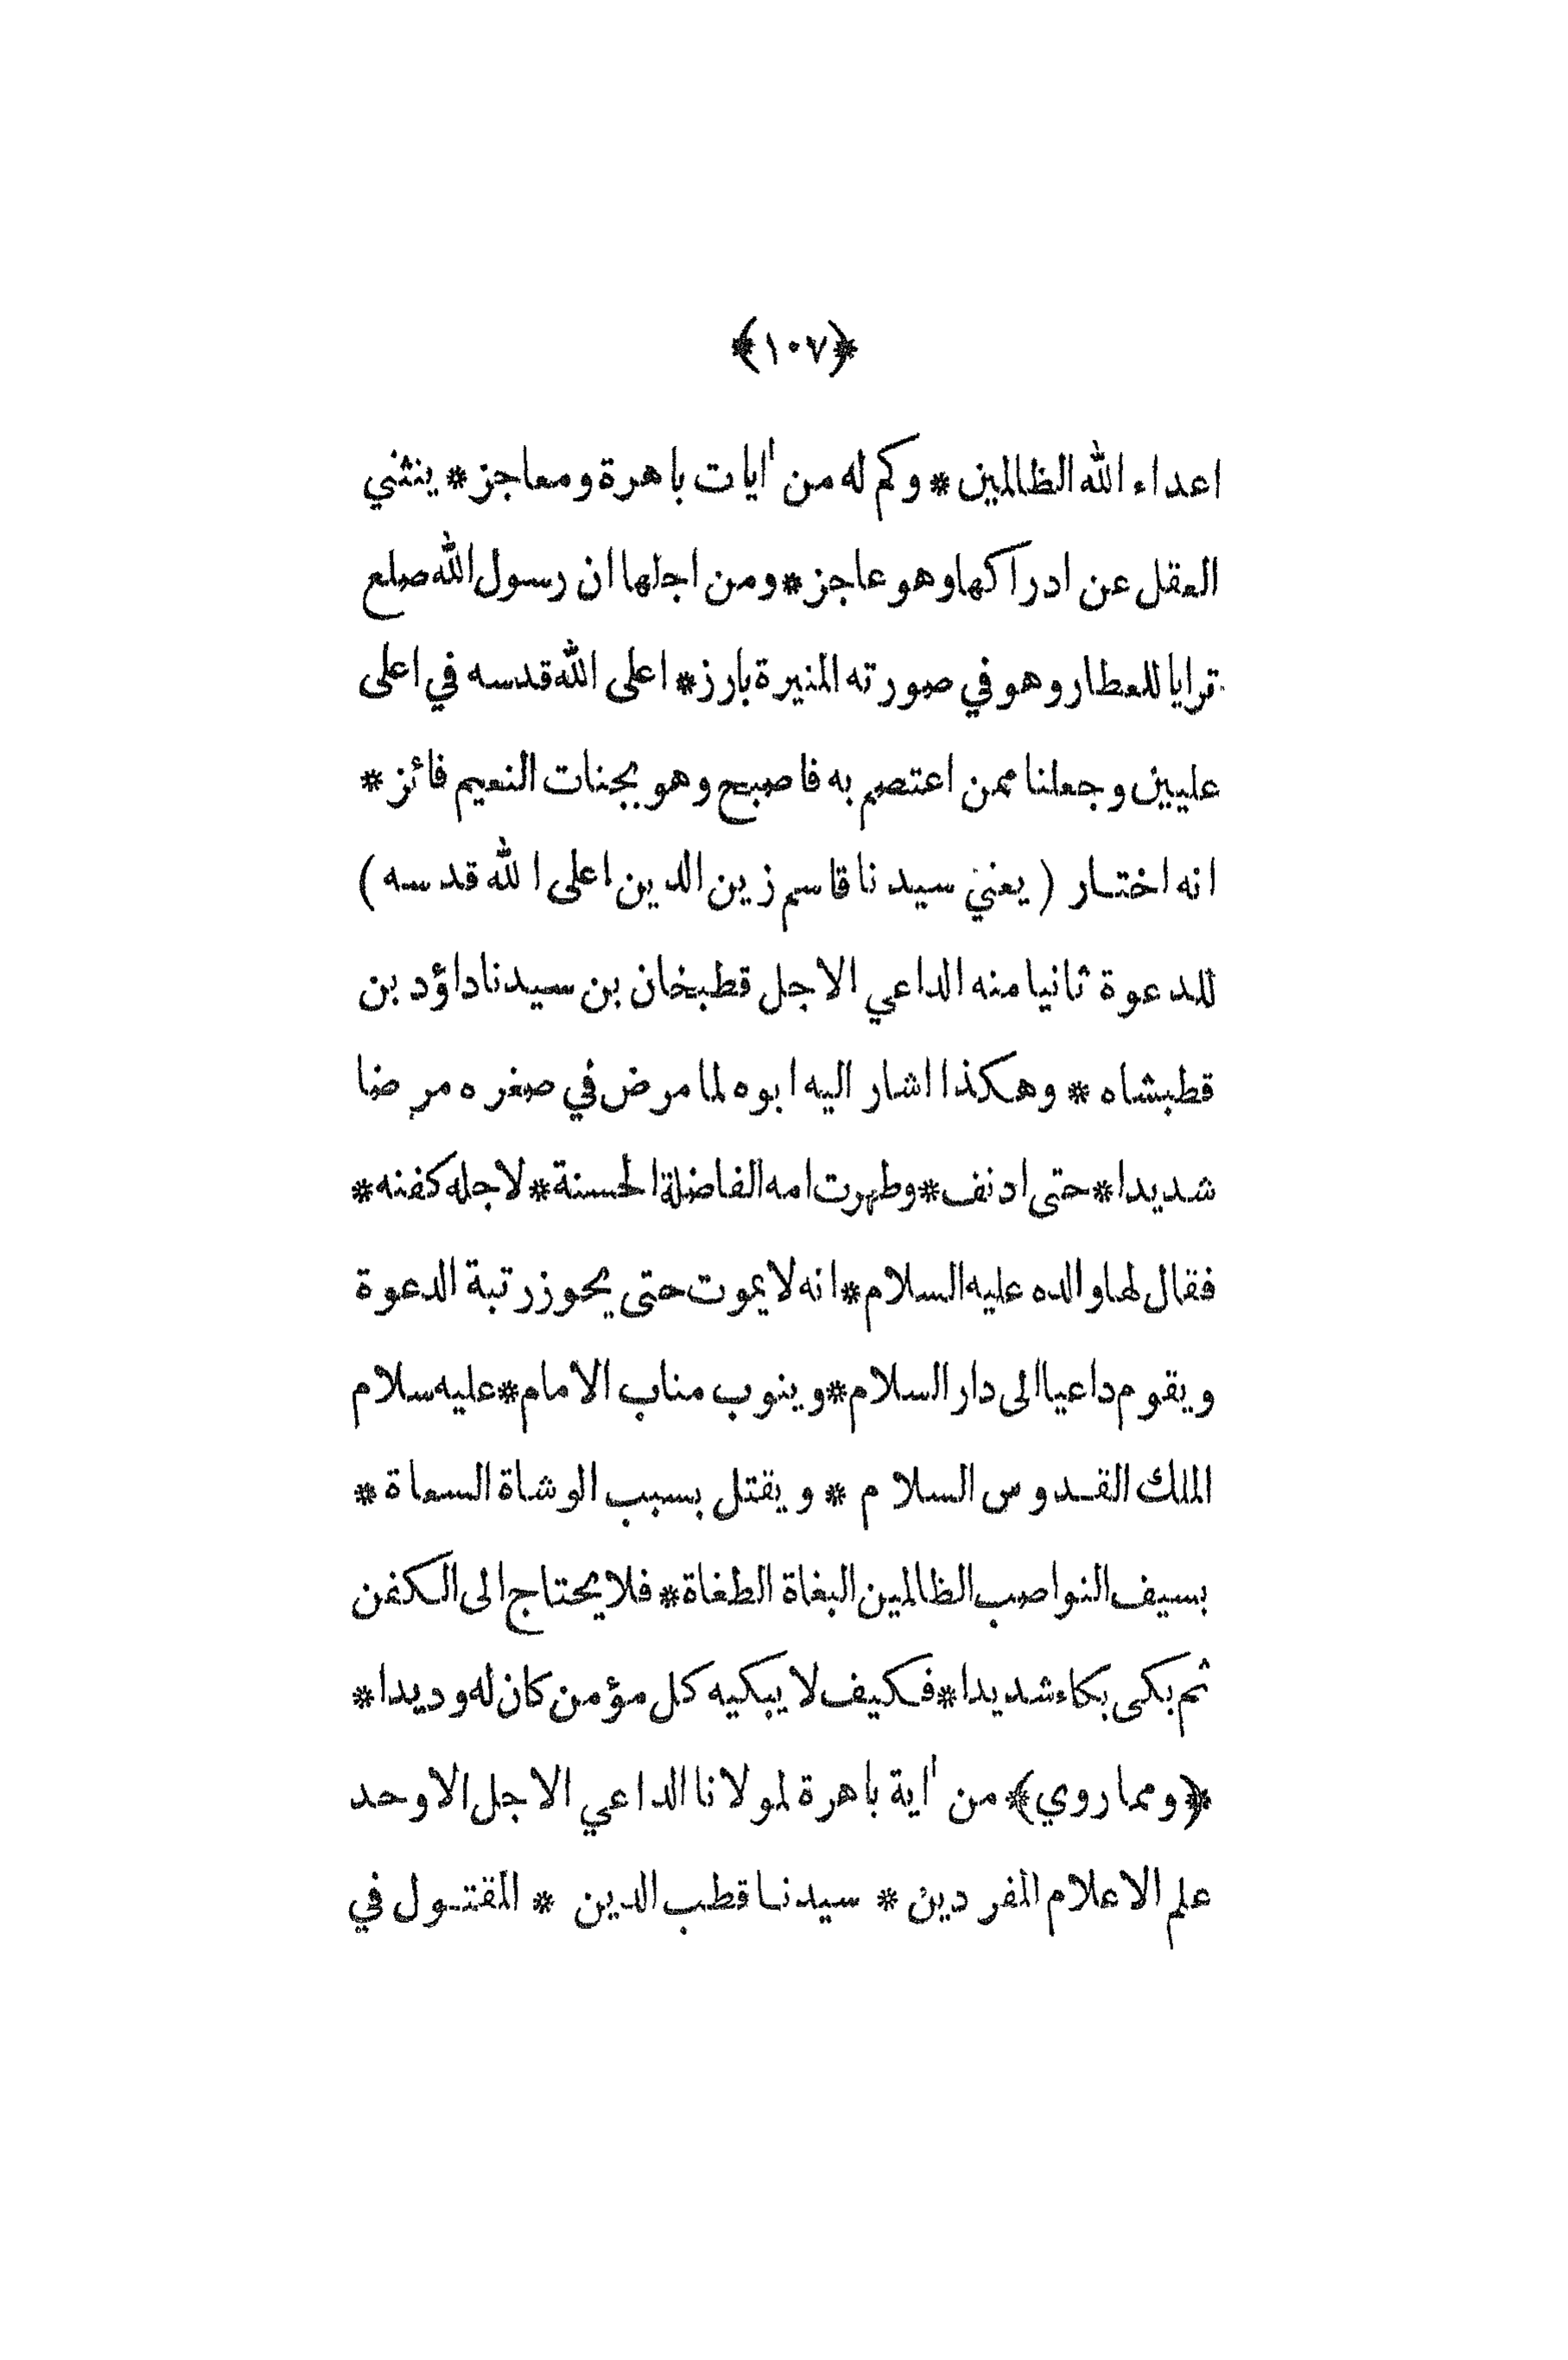 ﴿١٠٧﴾
اعداء الله الظالمين * وكم له من اٰيات باهرة ومعاجز * ينثني
العقل عن ادراكها وهو عاجز * ومن اجلها ان رسول الله صلع
ترايا للعطار وهو في صورته المنيرة بارز * اعلى الله قدسه في اعلى
عليين وجعلنا ممن اعتصم به فاصبح وهو بجنات النعيم فائز *
انه اختار ( يعني سيدنا قاسم زين الدين اعلى الله قدسه )
للدعوة ثانيا منه الداعي الاجل قطبخان بن سيدنا داؤد بن
قطبشاه * وهكذا اشار اليه ابوه لما مرض في صغره مرضا
شديدا * حتى ادنف * وطهرت امه الفاضلة الحسنة * لاجله كفنه *
فقال لها والده عليه السلام * انه لا يموت حتى يحوز رتبة الدعوة
ويقوم داعيا الى دار السلام * وينوب مناب الامام * عليه سلام
الملك القدوس السلام * ويقتل بسبب الوشاة السعاة *
بسيف النواصب الظالمين البغاة الطغاة * فلا يحتاج الى الكفن
ثم بكى بكاء شديدا * فكيف لا يبكيه كل مؤمن كان له وديدا *
﴿ومما روي﴾ من اٰية باهرة لمولانا الداعي الاجل الاوحد
علم الاعلام المفردين * سيدنا قطب الدين * المقتول في